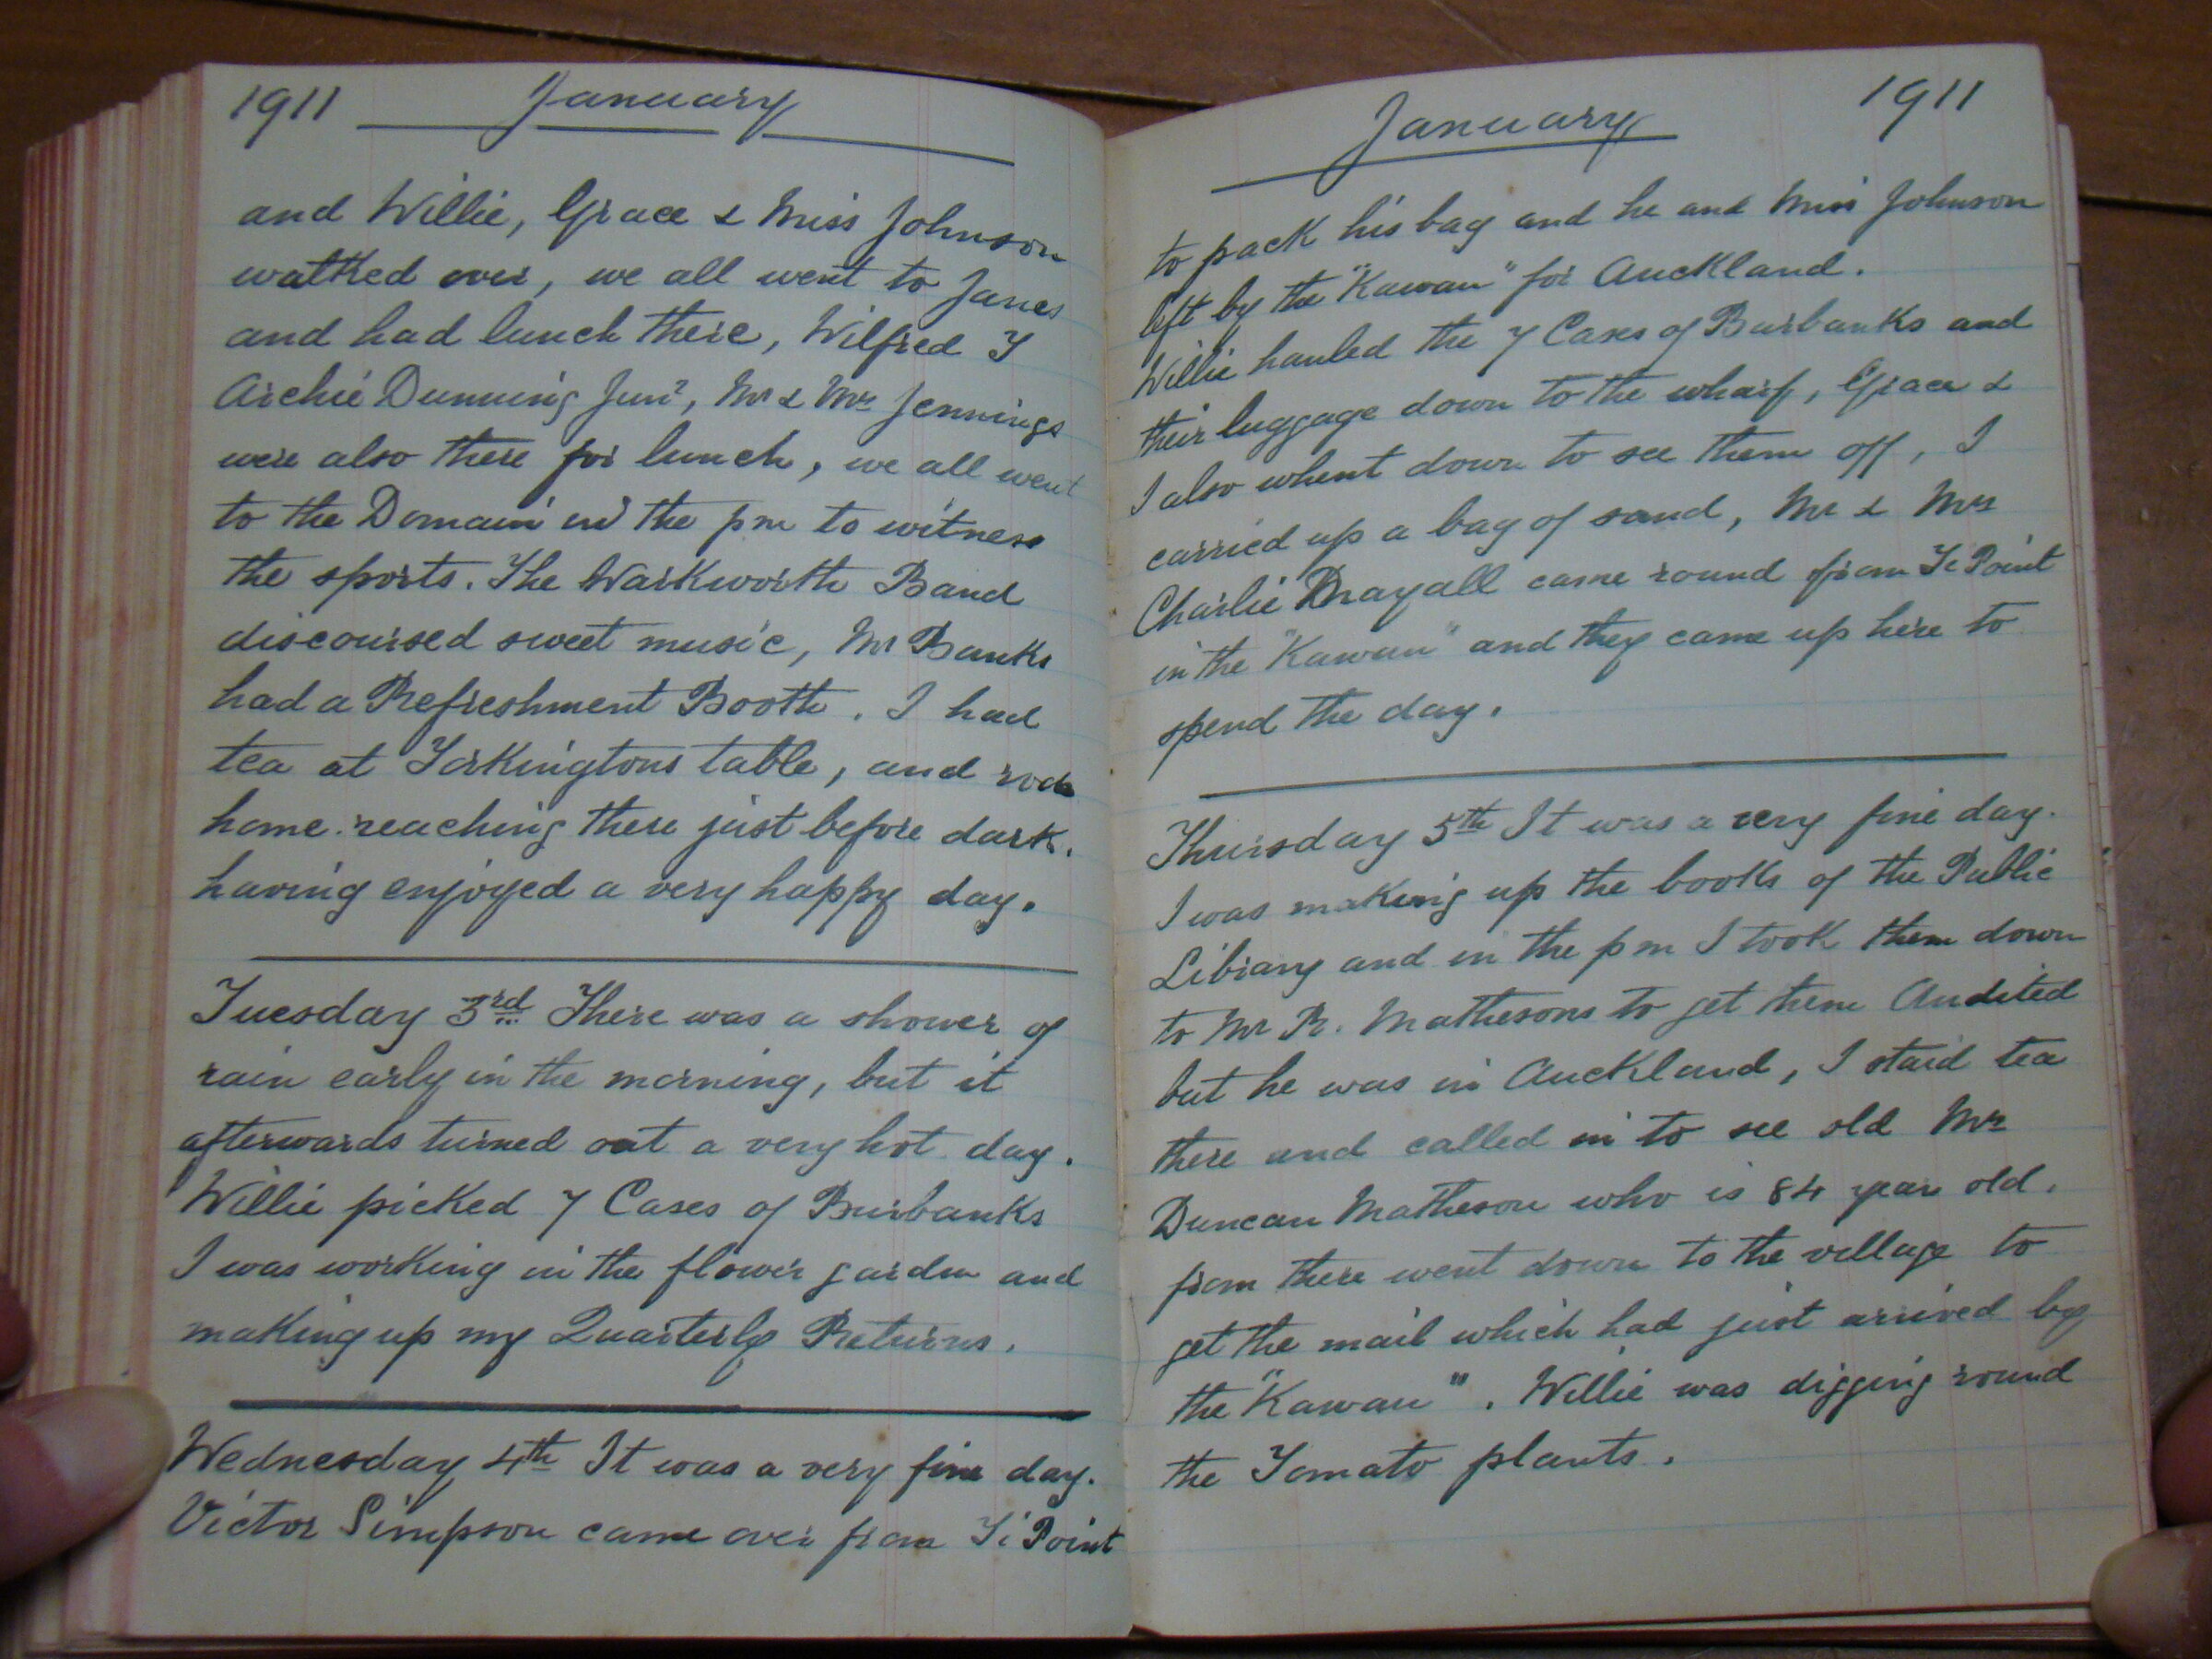 1911 January
and Willie, Grace & Miss Johnson
walked over, we all went to Janes
and had lunch there, Wilfred &
Archie Dunning Junr, Mr & Mrs Jennings
were also there for lunch, we all went
to the Domain in the pm to witness
the sports. The Warkworth Band
discoursed sweet music, Mr Banks
had a Refreshment Booth. I had
tea at Torkingtons table, and rode
home reaching there just before dark.
having enjoyed a very happy day.
Tuesday 3rd There was a shower of
rain early in the morning, but it
afterwards turned out a very hot day.
Willie picked 7 Cases of Burbanks
I was working in the flower garden and
making up my Quarterly Returns.
Wednesday 4th It was a very fine day.
Victor Simpson came over from Ti Point
January 1911
to pack his bag and he and Miss Johnson
left by the "Kawau" for Auckland.
Willie hauled the 7 Cases of Burbanks and
their luggage down to the wharf, Grace &
I also whent down to see them off, I
carried up a bag of sand, Mr & Mrs
Charlie Mayall came round from Ti Point
in the "Kawau" and they came up here to
spend the day.
Thursday 5th It was a very fine day.
I was making up the books of the Public
Library and in the pm I took them down
to Mr R. Mathesons to get them Audited
but he was in Auckland, I staid tea
there and called in to see old Mr
Duncan Matheson who is 84 year old.
from there went down to the village to
get the mail which had just arrived by
the "Kawau". Willie was digging round
the Tomato plants.